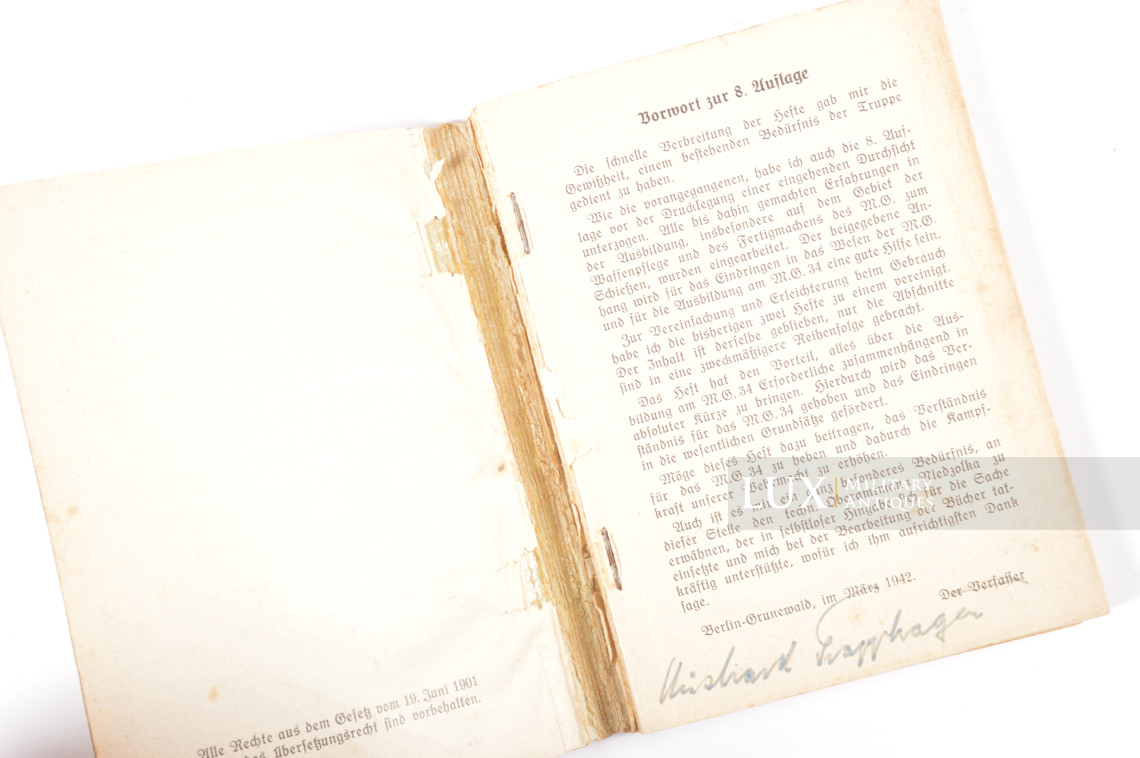 Alle Rechte aus dem Gesetz vom 19. Juni 1901
des Übersetzungsrecht sind vorbehalten.
Vorwort zur 8. Auflage
Die schnelle Verbreitung der Hefte gab mir die
Gewißheit, einem bestehenden Bedürfnis der Truppe
gedient zu haben.
Wie die vorangegangenen, habe ich auch die 8. Auf-
lage vor der Drucklegung einer eingehenden Durchsicht
unterzogen. Alle bis dahin gemachten Erfahrungen in
der Ausbildung, insbesondere auf dem Gebiet der
Waffenpflege und des Fertigmachens des M.G. zum
Schießen, wurden eingearbeitet. Der beigegebene An-
hang wird für das Eindringen in das Wesen der M.G.
und für die Ausbildung am M.G. 34 eine gute Hilfe sein.
Zur Vereinfachung und Erleichterung beim Gebrauch
habe ich die bisherigen zwei Hefte zu einem vereinigt.
Der Inhalt ist derselbe geblieben, nur die Abschnitte
sind in eine zweckmäßigere Reihenfolge gebracht.
Das Heft hat den Vorteil, alles über die Aus-
bildung am M.G. 34 Erforderliche zusammenhängend in
absoluter Kürze zu bringen. Hierdurch wird das Ver-
ständnis für das M.G. 34 gehoben und das Eindringen
in die wesentlichen Grundsätze gefördert.
Möge dieses Heft dazu beitragen, das Verständnis
für das M.G. 34 zu heben und dadurch die Kampf-
kraft unserer Wehrmacht zu erhöhen.
Auch ist es mir ein ganz besonderes Bedürfnis, an
dieser Stelle den techn. Oberamtmann Niedzolka zu
erwähnen, der in selbstloser Hingabe sich für die Sache
einsetzte und mich bei der Bearbeitung der Bücher tat-
kräftig unterstützte, wofür ich ihm aufrichtigsten Dank
sage.
Berlin-Grunewald, im März 1942.
Der Verfasser
LUX MILITARY
ANTIQUES